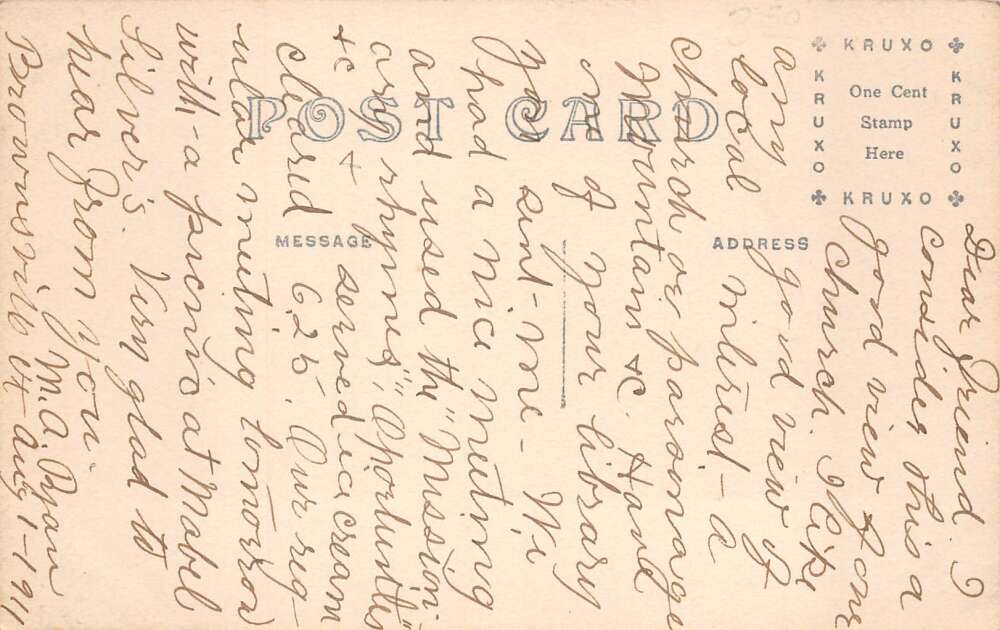 KRUXO
KRUXO
KRUXO
KRUXO
One Cent
Stamp
Here
POST CARD
MESSAGE
ADDRESS
Dear Friend. I
consider this a
good view of our
church. I like
good view of
any
interest - a
local
church or parsonage
Mountain &c. Have
one of your library
you sent - me - We
had a nice meeting
and used the "Mission-
ary rhymes", "Aphorunthes"
&c & served ice cream
cleared 6.25. Our reg-
ular meeting tomorrow
with - a picnic at Mabel
Silver's. Very glad to
hear from you.
M. A. Ryan
Brownsville Vt Aug 1 - 1911